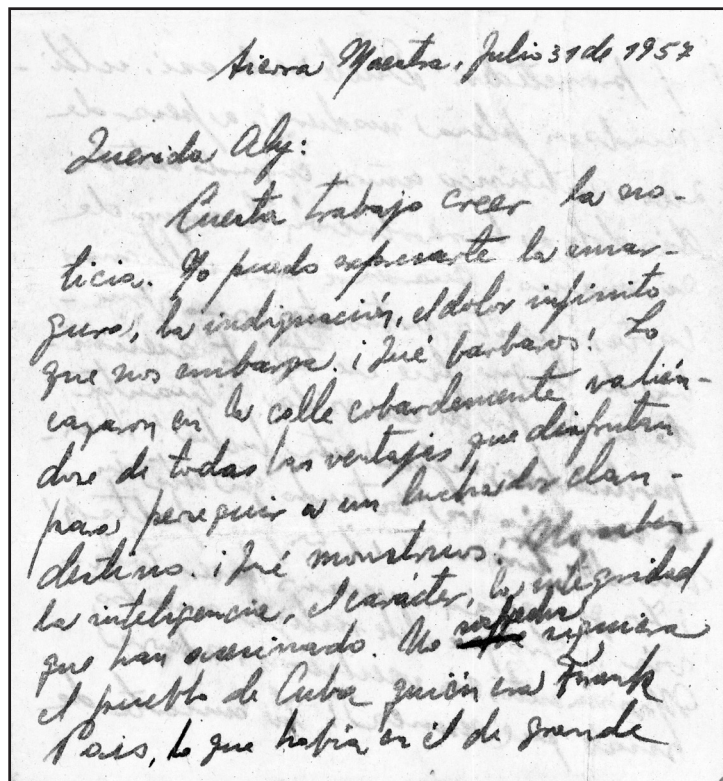 Sierra Maestra, Julio 31 de 1957
Querida Aly:
Cuesta trabajo creer la no-
ticia. No puedo expresarte la amar-
gura, la indignación, el dolor infinito
que nos embarga. ¡Qué bárbaros! Lo
cazaron en la calle cobardemente valién-
dose de todas las ventajas que disfrutan
para perseguir a un luchador clan-
destino. ¡Qué monstruos! No saben
la inteligencia, el carácter, la integridad
que han asesinado. No sospecha siquiera
el pueblo de Cuba quién era Frank
País, lo que había en él de grande